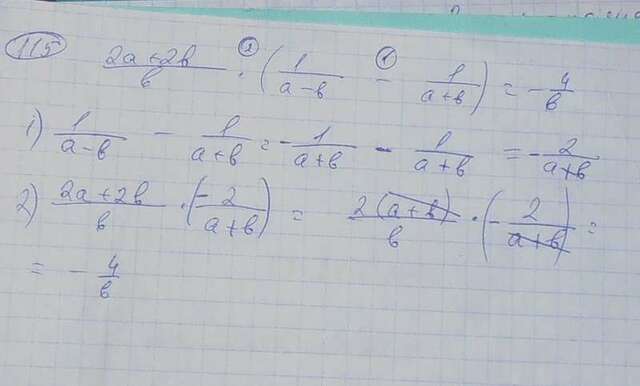 115 (2a+2b)/b ② · (1/(a-b) ① - 1/(a+b)) = -4/b
1) 1/(a-b) - 1/(a+b) = -1/(a+b) - 1/(a+b) = -2/(a+b)
2) (2a+2b)/b · (-2/(a+b)) = 2(a+b)/b · (-2/(a+b)) =
= -4/b